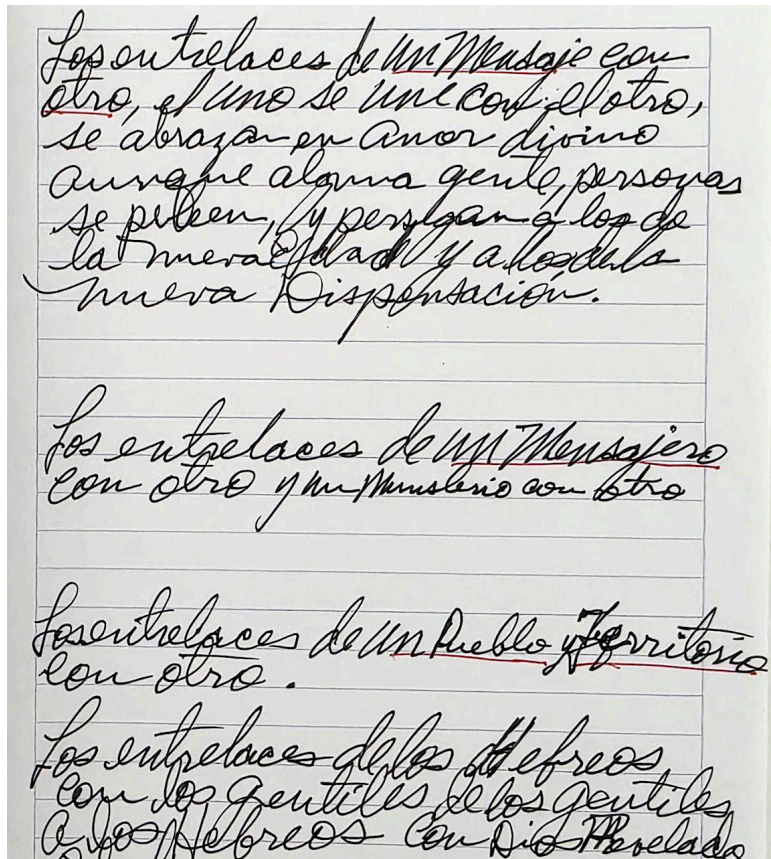 Los entrelaces de un Mensaje con
otro, el uno se une con el otro,
se abrazan en amor divino
aunque alguna gente, personas
se peleen, y persigan a los de
la nueva Edad y a los de la
nueva Dispensación.
Los entrelaces de un Mensajero
con otro y un Ministerio con otro
Los entrelaces de un Pueblo y Territorio
con otro.
Los entrelaces de los Hebreos
con los gentiles de los gentiles
a los Hebreos con Dios Revelado